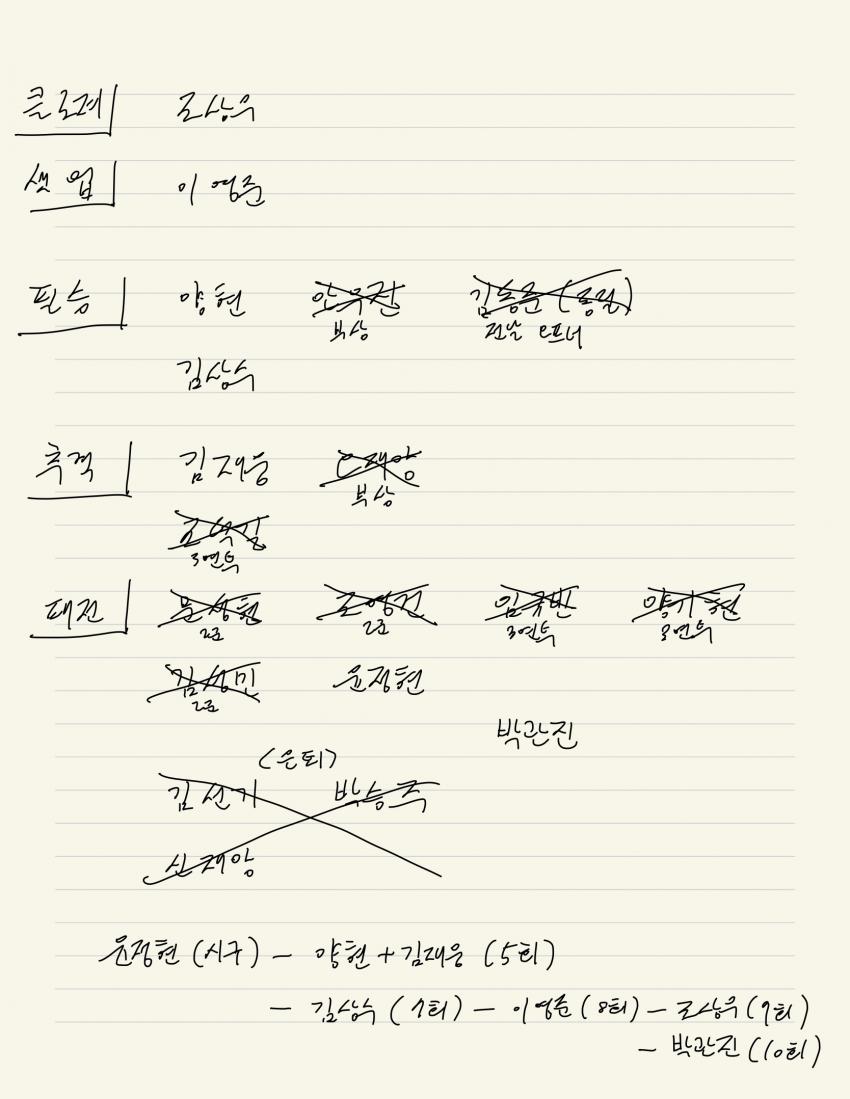 클로저 조상우
셋업 이영준
필승 양현 안우진 김동준 (롱릴)
부상 전날 오프너
김상수
추격 김재웅 오재영
부상
조덕길
3연투
패전 문성현 조영건 임규빈 양기현
2조 2조 3연투 3연투
김성민 윤정현
2조
박관진
(은퇴)
김선기 박승주
신재영
윤정현 (시구) - 양현 + 김재웅 (5회)
- 김상수 (7회) - 이영준 (8회) - 조상우 (9회)
- 박관진 (10회)